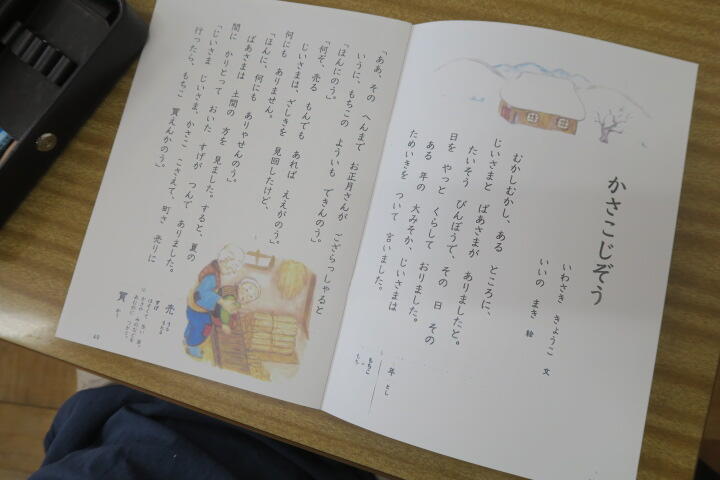 かさこじぞう
いわさき きょうこ 文
いいの まき 絵
むかしむかし、ある ところに、
じいさまと ばあさまが ありましたと。
たいそう びんぼうで、その 日 その
日を やっと くらして おりました。
ある 年の 大みそか、じいさまは
ためいきを ついて 言いました。
年 とし
もちこ
もち
「ああ、その へんまで お正月さんが ござらっしゃると
いうに、もちこの よういも できんのう。」
「ほんにのう。」
「何ぞ、売る もんでも あれば ええがのう。」
じいさまは、ざしきを 見回したけど、
何にも ありません。
「ほんに、何にも ありゃせんのう。」
ばあさまは 土間の 方を 見ました。すると、夏の
間に かりとって おいた すげが つんで ありました。
「じいさま じいさま、かさこ こさえて、町さ 売りに
行ったら、もちこ 買えんかのう。」
売 うる
すげ
買 か